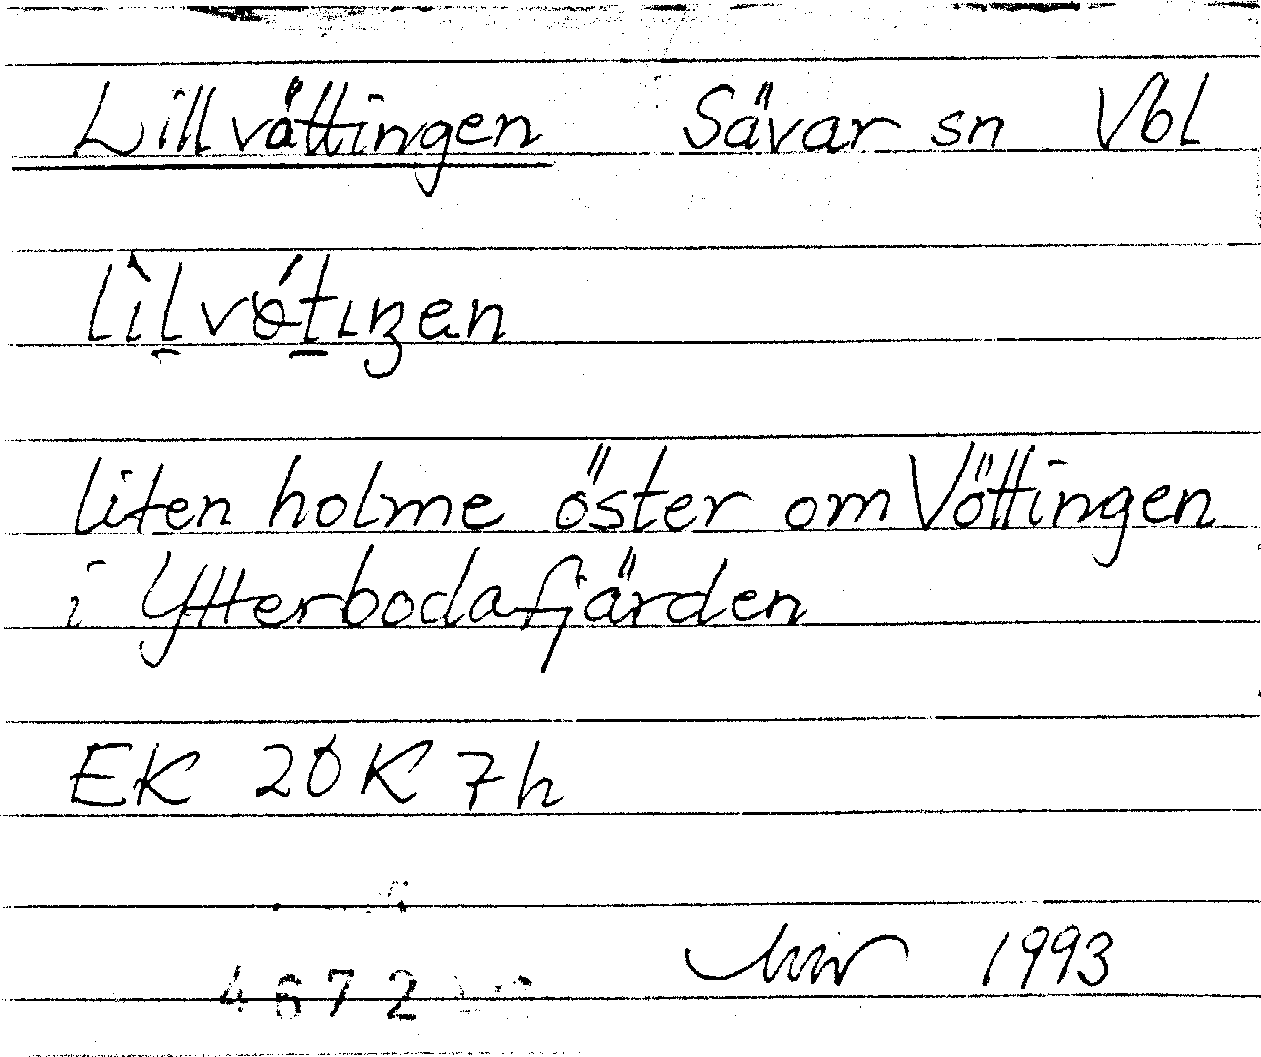 Lillvättingen Sävar sn Vbl
lìl̲vǿt̲ɩŋen
liten holme öster om Vöttingen
i Ytterbodafjärden
EK 20K 7h
1993
4672